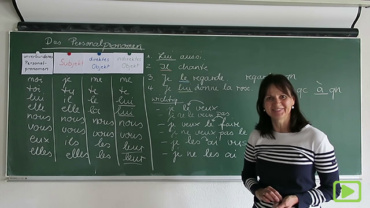 Das Personalpronomen
Subjekt
direktes Objekt
indirektes Objekt
moi je me me
toi tu te te
lui il le lui
elle elle la lui
nous nous nous nous
vous vous vous vous
eux ils les leur
elles elles les leur
1. Lui aussi
2. Je chante
3 Je le regarde
4. Je lui donne la rose
à qn
Wichtig
- je le veux
- je ne le veux pas
- je veux le faire
- je ne veux pas le
- je les ai vus
- je ne les ai